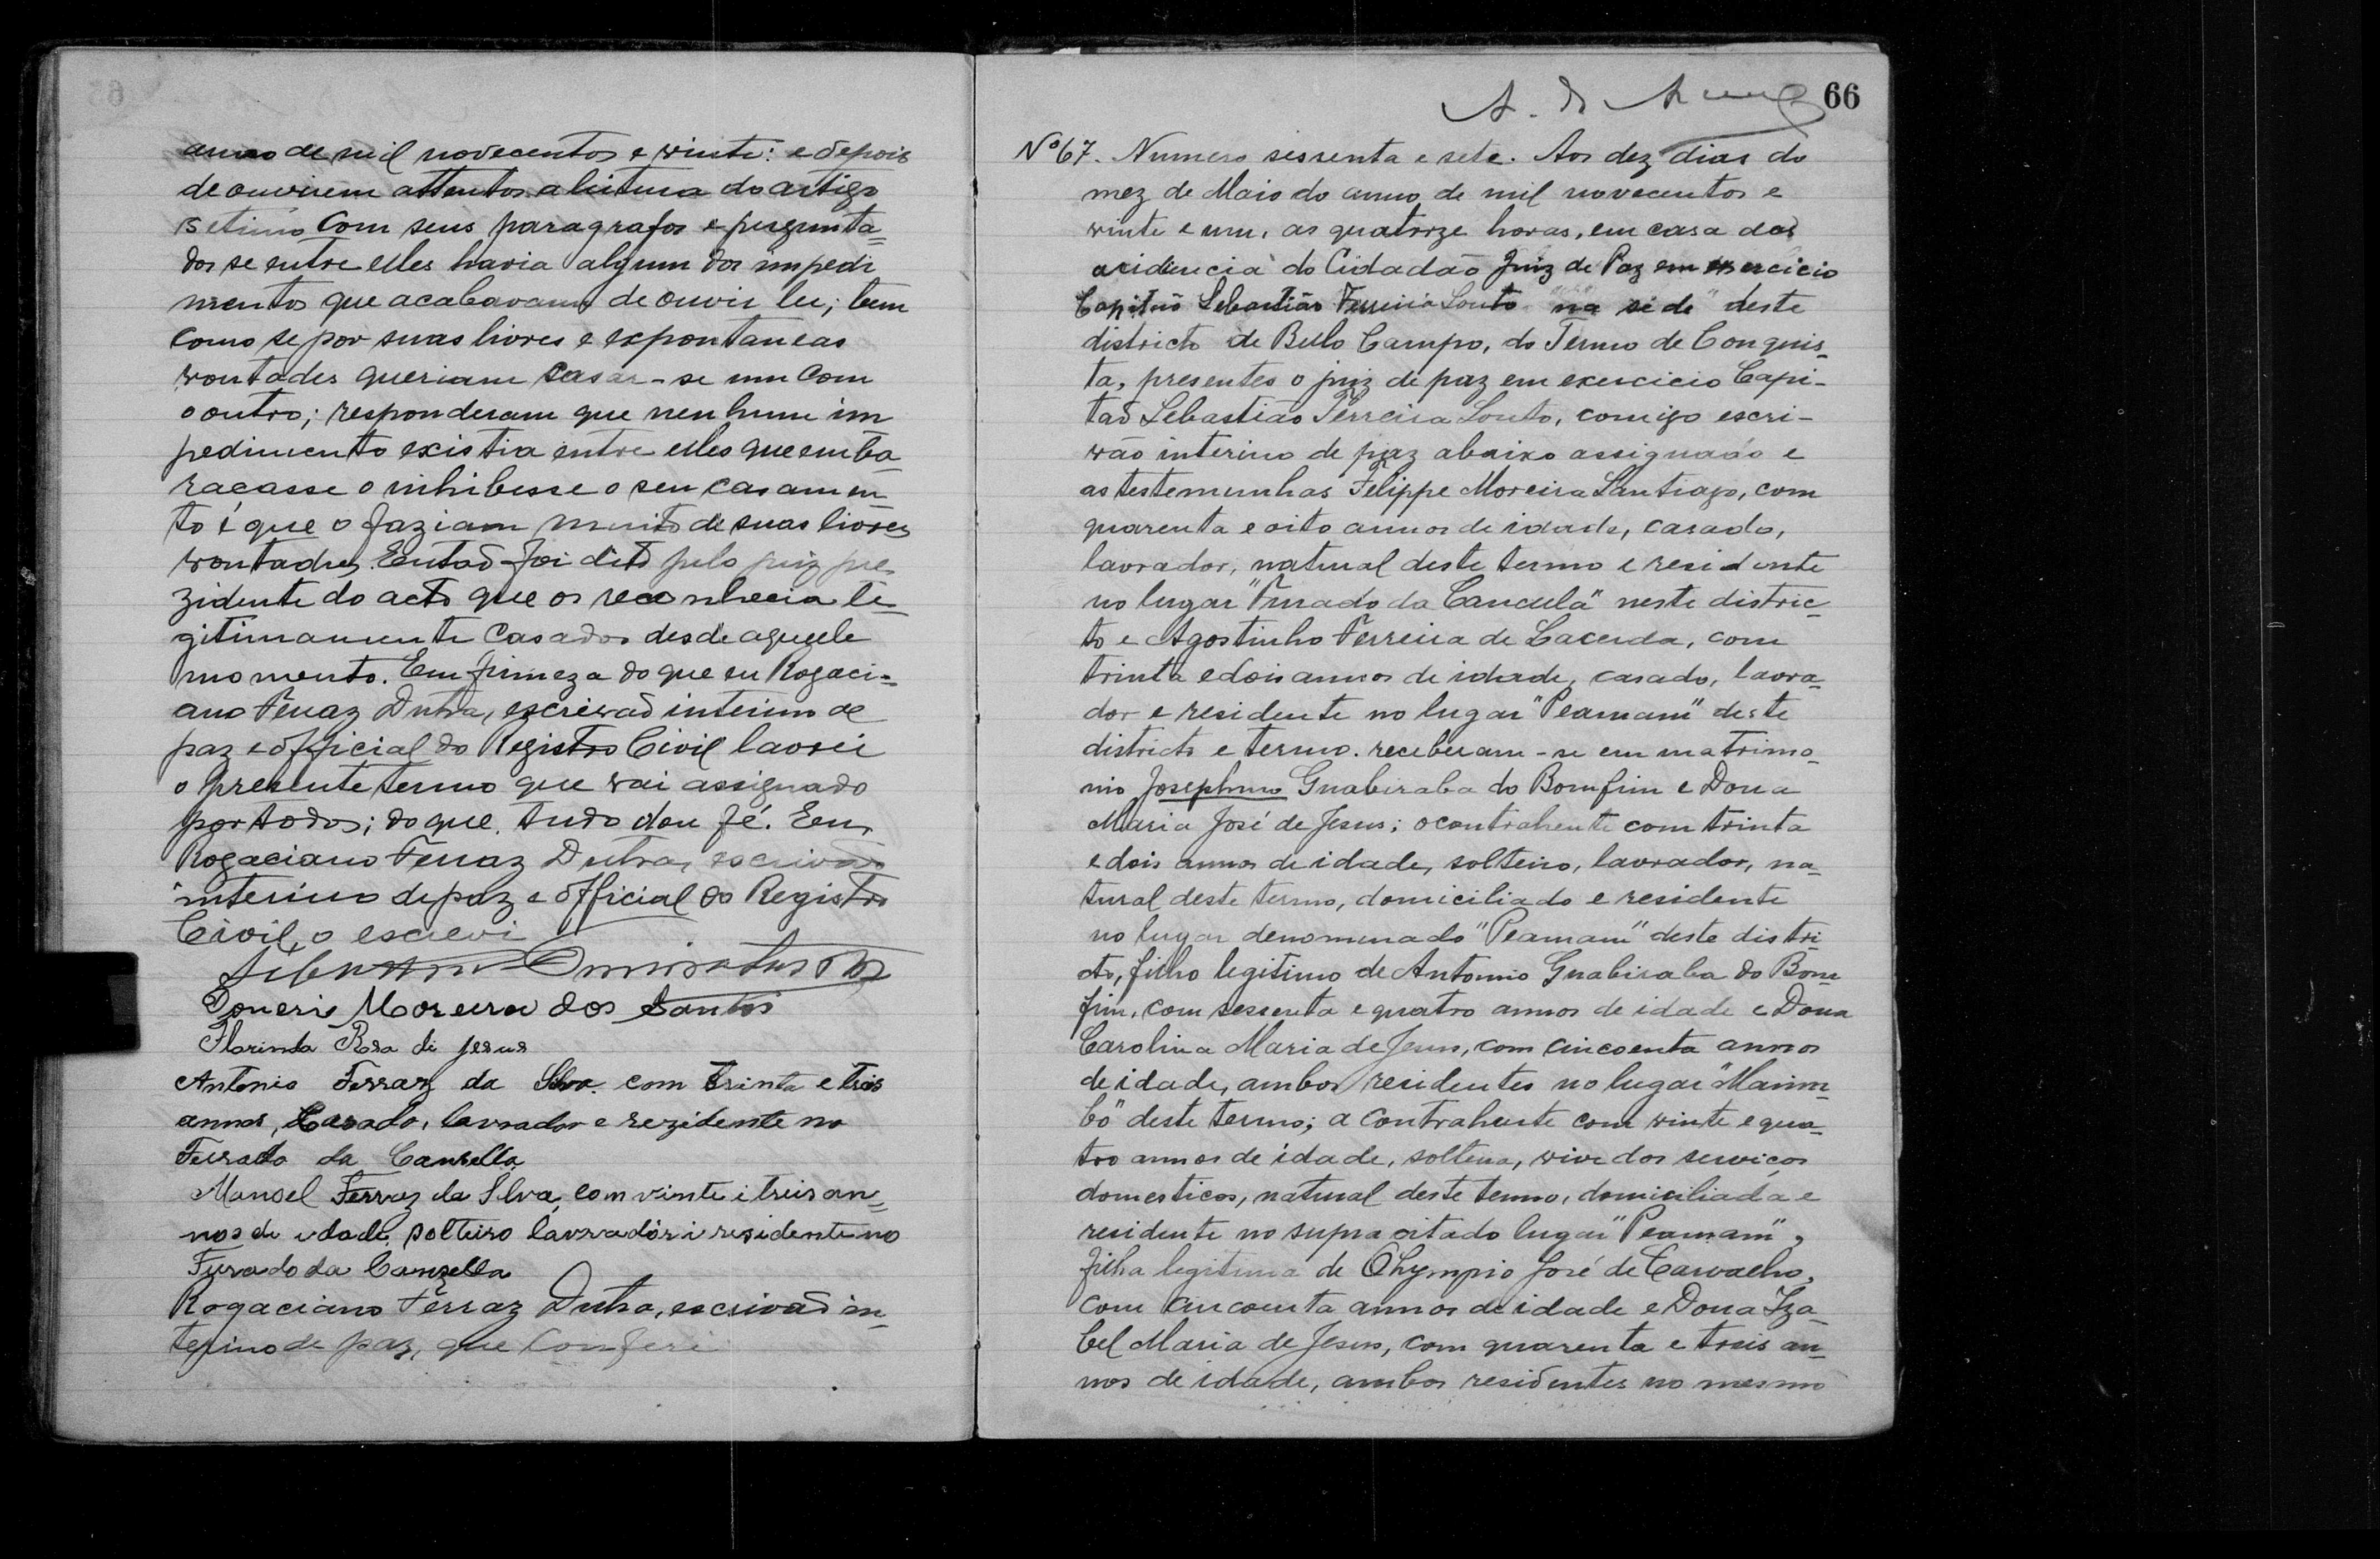 anno de mil novecentos e vinte: e depois
de ouvirem attentos a leitura do artigo
setimo com seus paragrafos e pergunta=
dos se entre elles havia algum dos impedi
mentos que acabavam de ouvir ler; bem
como se por suas livres e expontaneas
vontades queriam casar-se um com
o outro; responderam que nenhum im
pedimento existia entre elles que emba-
raçasse o inhibesse o seu casamen-
to é que o faziam muito de suas livres
vontades. Entaõ foi dito pelo juiz pre-
zidente do acto que os reconhecia le-
gitimamente casados desde aquele
momento. Em firmeza do que eu Rogaci=
ano Ferraz Dutra, escrivaõ interino de
paz e official do Registro Civil lavrei
o presente termo que vai assignado
por todos; do que tudo dou fé. Eu,
Rogaciano Ferraz Dutra, escrivaõ
interino de paz e official do Registro
Civil, o escrevi
Moreira dos Santos
Florinda Rosa di Jesus
Antonio Ferraz da Silva com trinta e trois
annos, casado, lavrador e rezidente no
Furado da Cansella
Manoel Ferraz da Silva, com vinte i treis an=
nos de idade, solteiro lavradôr i residente no
Furado da Canzella
Rogaciano Ferraz Dutra, escrivaõ in-
terino de paz, que conferi
66
Nº 67. Numero sessenta e sete. Aos dez dias do
mez de Maio do anno de mil novecentos e
vinte e um, as quatorze horas, em casa das
rezidencia do Cidadão Juiz de Paz em exercicio
Capitaõ Sebastião Ferreira Souto na séde deste
districto de Bello Campo, do Termo de Conquis-
ta, presentes o juiz de paz em exercicio Capi-
taõ Sebastião Ferreira Souto, comigo escri-
vão interino de paz abaixo assignado e
as testemunhas Felippe Moreira Santiago, com
quarenta e oito annos de idade, casado,
lavrador, natural deste termo e residente
no lugar "Furado da Cancela" neste distric-
to e Agostinho Ferreira de Lacerda, com
trinta e dois annos de idade, casado, lavra-
dor e residente no lugar "Peamam" deste
districto e termo. receberam-se em matrimo-
nio Josephino Guabiraba do Bomfim e Dona
Maria José de Jesus; o contrahente com trinta
e dois annos de idade, solteiro, lavrador, na-
tural deste termo, domiciliado e residente
no lugar denominado "Peamam" deste distri-
cto, filho legitimo de Antonio Guabiraba do Bom-
fim, com sessenta e quatro annos de idade e Dona
Carolina Maria de Jesus, com cincoenta annos
de idade, ambos residentes no lugar "Marim-
bo" deste termo; a contrahente com vinte e qua-
tro annos de idade, solteira, vive dos serviços
domesticos, natural deste termo, domiciliada e
residente no supra citado lugar "Peamam",
filha legitima de Olympio José de Carvalho,
com cincoenta annos de idade e Dona Iza-
bel Maria de Jesus, com quarenta e treis an-
nos de idade, ambos residentes no mesmo